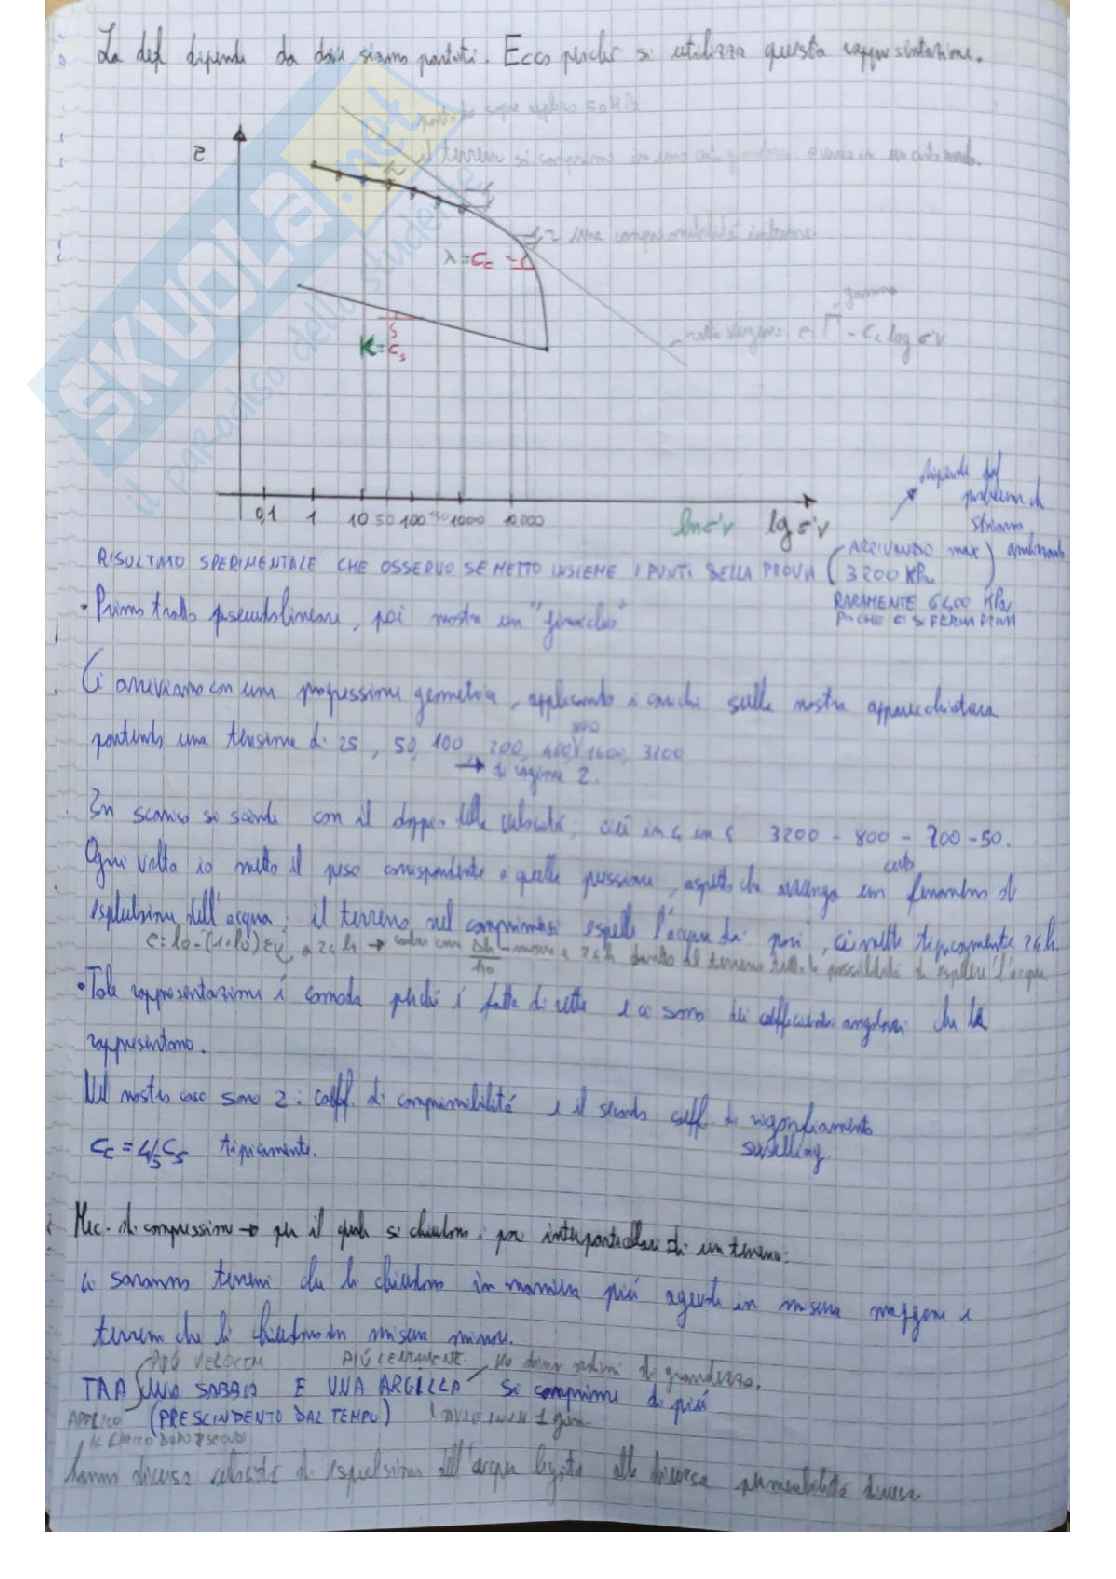 La def dipende da dove siamo partiti. Ecco perché si utilizza questa rappresentazione.
SKUOLA.net
il paradiso dello studente
e
il terreno si comprime in
2 una compressibilità
λ = Cc
gamma
retta vergine: e = Γ - Cc log σ'v
K = Cs
0,1 1 10 50 100 1000 10000 ln σ'v lg σ'v
dipende dal problema di
RISULTATO SPERIMENTALE CHE OSSERVO SE METTO INSIEME I PUNTI DELLA PROVA (ARRIVANDO max 3200 KPa)
RARAMENTE 6400 KPa
POICHÉ CI SI FERMA PRIMA
• Primo tratto pseudolineare, poi mostra un "ginocchio"
Ci arriviamo con una progressione geometrica, applicando i carichi sulla nostra apparecchiatura
portando una tensione di 25, 50, 100, 200, 400, 800, 1600, 3200
→ di ragione 2.
In scarico si scende con il doppio della velocità, cioè 3200 - 800 - 200 - 50.
Ogni volta io metto il peso corrispondente a quella pressione, aspetto che avvenga un certo fenomeno di
espulsione dell'acqua: il terreno nel comprimersi espelle l'acqua dai pori, ci mette tipicamente 24h.
e = e0 - (1+e0) εv, a 24h → Δh/h0 misura a 24h dando al terreno tutta la possibilità di espellere l'acqua
• Tale rappresentazione è comoda perché è fatta di rette e ci sono dei coefficienti angolari che la
rappresentano.
Nel nostro caso sono 2: coeff. di compressibilità e il secondo coeff. di rigonfiamento
swelling
Cc = 4/5 Cs tipicamente.
Mec. di compressione → per il quale si chiudono i pori interparticellari di un terreno:
ci saranno terreni che li chiudono in maniera più agevole in misura maggiore e
terreni che li chiudono in misura minore.
PIÙ VELOCEM PIÙ LENTAMENTE ordini di grandezza.
TRA UNA SABBIA E UNA ARGILLA si comprime di più
APPLICO (PRESCINDENDO DAL TEMPO)
IL CARICO DOPO
hanno diversa velocità di espulsione dell'acqua legata alla diversa permeabilità